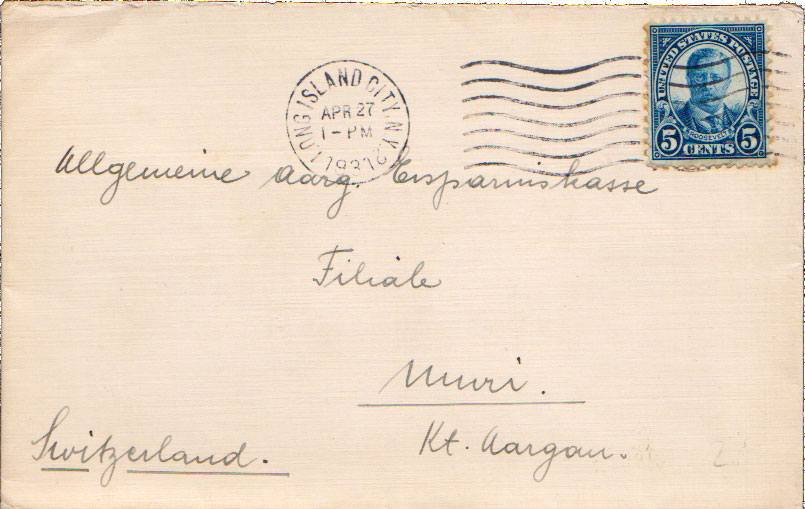 UNITED STATES POSTAGE
ROOSEVELT
5 CENTS 5
LONG ISLAND CITY, N.Y.
APR 27
1-PM
1931
Allgemeine Aarg. Ersparniskasse
Filiale
Muri.
Kt. Aargau.
Switzerland.